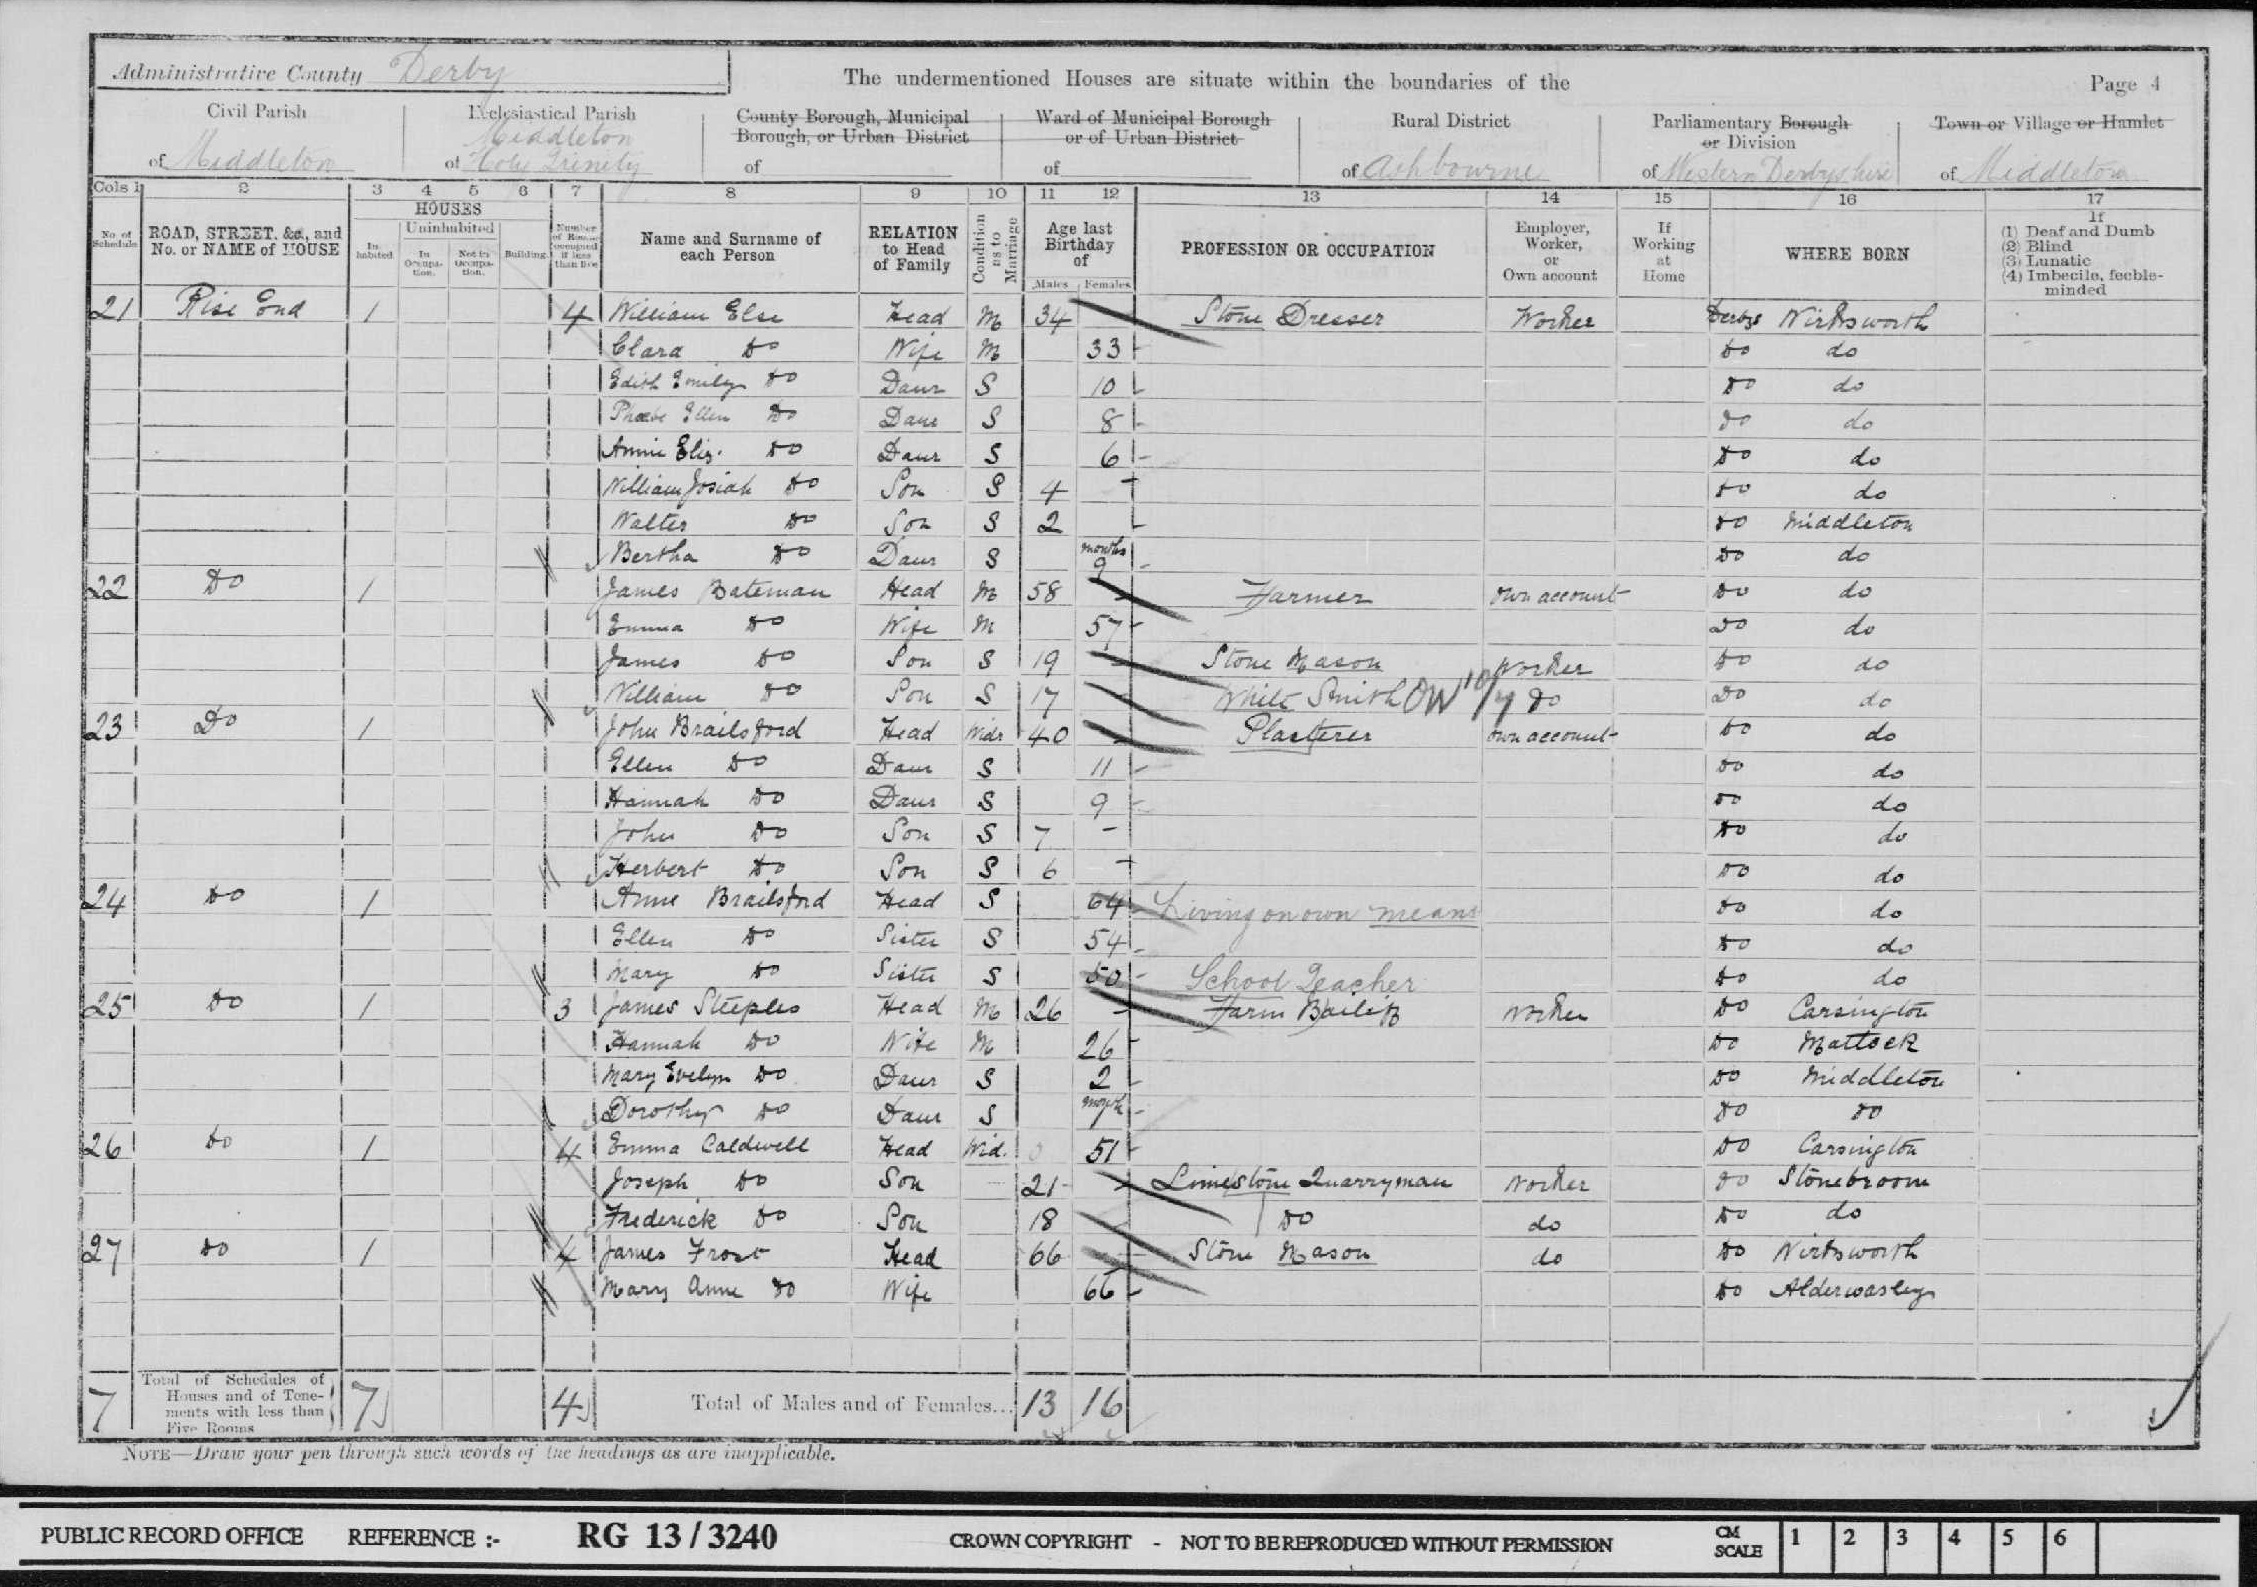 Administrative County Derby
The undermentioned Houses are situate within the boundaries of the
Page 4
Civil Parish of Middleton
Ecclesiastical Parish of Middleton Holy Trinity
County Borough, Municipal Borough, or Urban District of
Ward of Municipal Borough or of Urban District of
Rural District of Ashbourne
Parliamentary Borough or Division of Western Derbyshire
Town or Village or Hamlet of Middleton
Cols 1 2 3 4 5 6 7 8 9 10 11 12 13 14 15 16 17
No. of Schedule
ROAD, STREET, &c., and No. or NAME of HOUSE
HOUSES
In-habited
Uninhabited
In Occupa-tion.
Not in Occupa-tion.
Building.
Number of Rooms occupied if less than five
Name and Surname of each Person
RELATION to Head of Family
Condition as to Marriage
Age last Birthday of
Males Females
PROFESSION OR OCCUPATION
Employer, Worker, or Own account
If Working at Home
WHERE BORN
If
(1) Deaf and Dumb
(2) Blind
(3) Lunatic
(4) Imbecile, feeble-minded
21 Rise End 1 4 William Else Head M 34 Stone Dresser Worker Derbys Wirksworth
Clara Do Wife M 33 Do do
Edith Emily Do Daur S 10 Do do
Phœbe Ellen Do Daur S 8 Do do
Annie Eliz. Do Daur S 6 Do do
William Josiah Do Son S 4 Do do
Walter Do Son S 2 Do Middleton
Bertha Do Daur S months 9 Do do
22 Do 1 James Bateman Head M 58 Farmer own account Do do
Emma Do Wife M 57 Do do
James Do Son S 19 Stone Mason Worker Do do
William Do Son S 17 White Smith OW Do Do do
23 Do 1 John Brailsford Head Widr 40 Plasterer own account Do do
Ellen Do Daur S 11 Do do
Hannah Do Daur S 9 Do do
John Do Son S 7 Do do
Herbert Do Son S 6 Do do
24 Do 1 Anne Brailsford Head S 64 Living on own means Do do
Ellen Do Sister S 54 Do do
Mary Do Sister S 50 School Teacher Do do
25 Do 1 3 James Steeples Head M 26 Farm Bailiff Worker Do Carsington
Hannah Do Wife M 26 Do Matlock
Mary Evelyn Do Daur S 2 Do Middleton
Dorothy Do Daur S Do Do
26 Do 1 4 Emma Caldwell Head Wid. 51 Do Carsington
Joseph Do Son 21 Limestone Quarryman Worker Do Stonebroom
Frederick Do Son 18 Do do Do do
27 Do 1 4 James Frost Head 66 Stone Mason do Do Wirksworth
Mary Anne Do Wife 66 Do Alderwasley
7 Total of Schedules of Houses and of Tene-ments with less than Five Rooms 7 4 Total of Males and of Females... 13 16
NOTE—Draw your pen through such words of the headings as are inapplicable.
PUBLIC RECORD OFFICE REFERENCE :- RG 13 / 3240 CROWN COPYRIGHT - NOT TO BE REPRODUCED WITHOUT PERMISSION CM SCALE 1 2 3 4 5 6